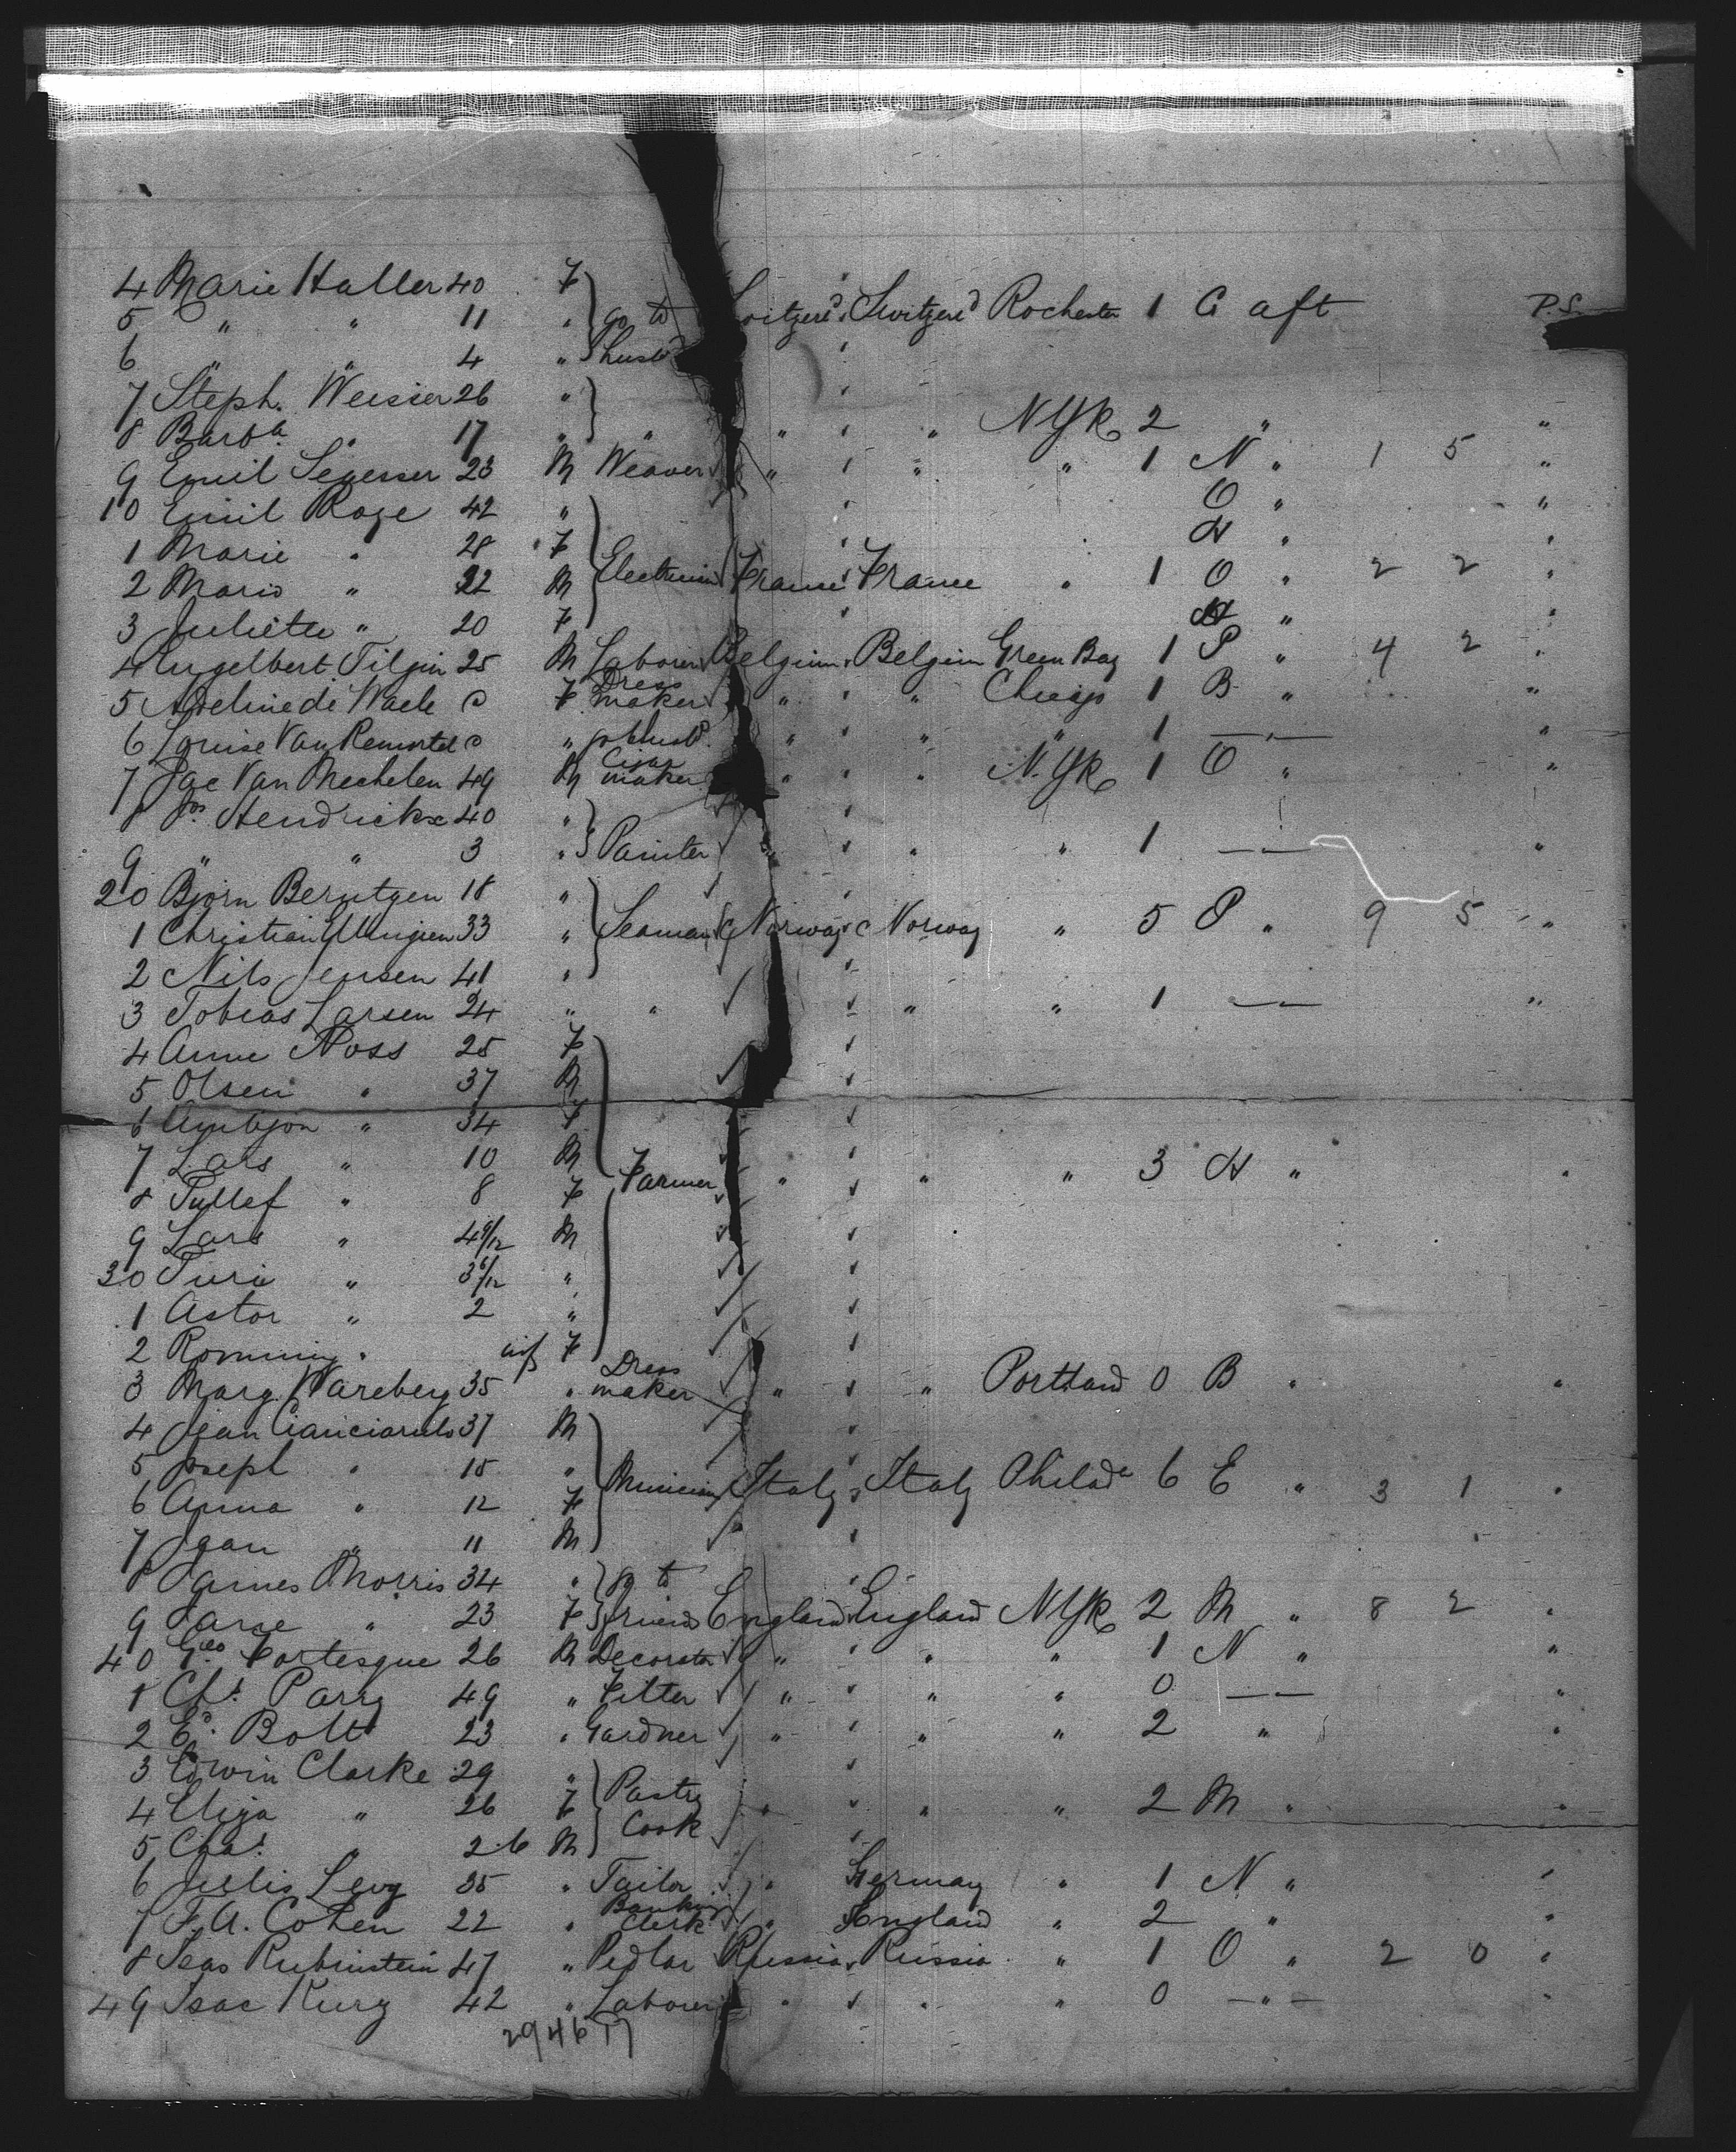 4 Marie Haller 40 F
5 " " 11 " go to Switzerd Switzerd Rochester 1 G aft P.S.
6 " " 4 " husbd
7 Steph. Weisser 26 "
8 Barba " 17 " " " " N Yk 2 " "
9 Emil Segesser 23 M Weaver " " " 1 N " 1 5 "
10 Emil Roge 42 " O " "
1 Marie " 28 F H " "
2 Mario " 22 M Electrician France France " 1 O " 2 2 "
3 Juliette " 20 F H " "
4 Engelbert Tilgin 25 M Laborer Belgium Belgium Green Bay 1 P " 4 2 "
5 Adeline de Waele F Dress maker " " Chicago 1 B " "
6 Louise Van Remortel " go to husbd. " " " 1 — " — "
7 Jac Van Mechelen 49 M Cigar maker " " N. Yk 1 O " "
8 Js. Hendrickx 40 "
9 " " 3 " Painter " " " 1 — " — "
20 Bjorn Berntzen 18 "
1 Christian 33 " Seaman Norway Norway " 5 P " 9 5 "
2 Nils Jensen 41 "
3 Tobias Larsen 24 " " " " 1 — " — "
4 Anne Noss 25 F
5 Olsen " 37 M
6 " 34 F
7 Lars " 10 M
8 Tullef " 8 F Farmer " " " 3 H " "
9 Lars " 4 9/12 M
30 Turi " 3 6/12 "
1 Astor " 2 "
2 " inf F
3 Marg. Wareberg 35 " Dress maker " " Portland 0 B " "
4 Jean Cianciarulo 37 M
5 Joseph " 15 "
6 Anna " 12 F Musician Italy Italy Philada 6 E " 3 1 "
7 Jean " 11 M
8 James Morris 34 " go to
9 Jane " 23 F friends England England N Yk 2 M " 8 2 "
40 Geo Fortesque 26 M Decorator " " " 1 N " "
1 Chs. Parry 49 " Fitter " " " 0 — — "
2 Ed. Bolt 23 " Gardner " " " 2 " "
3 Edwin Clarke 29 "
4 Eliza " 26 F Pastry Cook " " " 2 M " "
5 Chas. " 2.6 M
6 Julis Levy 35 " Tailor " Germany " 1 N " "
7 F. A. Cohen 22 " Banking Clerk " England " 2 " "
8 Isas Rubinstein 47 " Pedlar Russia Russia " 1 O " 2 0 "
49 Isac Kurz 42 " Laborer " " " 0 — " — "
294617